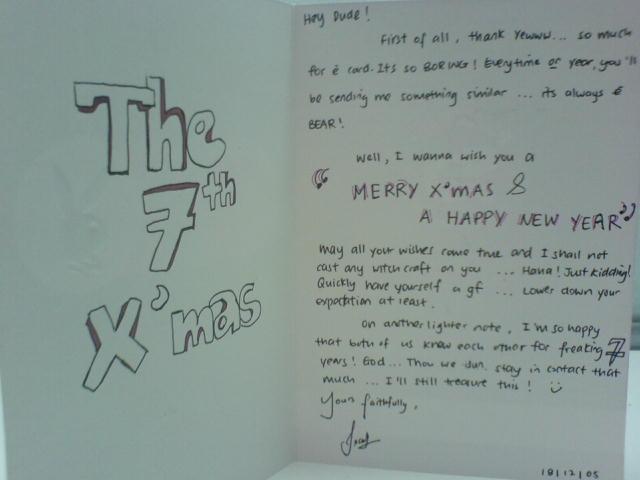 The
7th
X'mas
Hey Dude!
First of all, thank Yewww... so much
for ē card. Its so BORING! Everytime or year, you'll
be sending me something similar ... its always ē
BEAR!
Well, I wanna wish you a
“ MERRY X'MAS &
A HAPPY NEW YEAR ”
May all your wishes come true and I shall not
cast any witch craft on you ... Haha! Just kidding!
Quickly have yourself a gf ... Lower down your
expectation at least.
On another lighter note, I'm so happy
that both of us know each other for freaking 7
years! God... Thou we dun stay in contact that
much ... I'll still treasure this! :)
Yours faithfully,
18/12/05